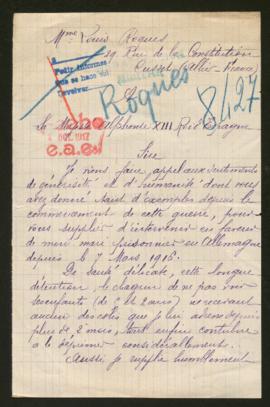 Mme Louis Roques
29 Rue de la Constitution
Cusset (Allier - France)
Roques
8427
OCT. 1917
e.a.e.
Sa Majesté Alphonse XIII Roi d'Espagne
Sire
Je viens faire appel aux sentiments
de générosité, et d'humanité dont vous
avez donné tant d'exemples depuis le
commencement de cette guerre, pour
vous supplier d'intervenir en faveur
de mon mari prisonnier en Allemagne
depuis le 7 Mars 1916.
De santé délicate, cette longue
détention, le chagrin de ne pas voir
ses enfants (de et 2 ans) ne recevant
aucun des colis que je lui adresse depuis
plus de 2 mois, tout enfin contribue
à le déprimer considérablement.
Aussi je supplie humblement